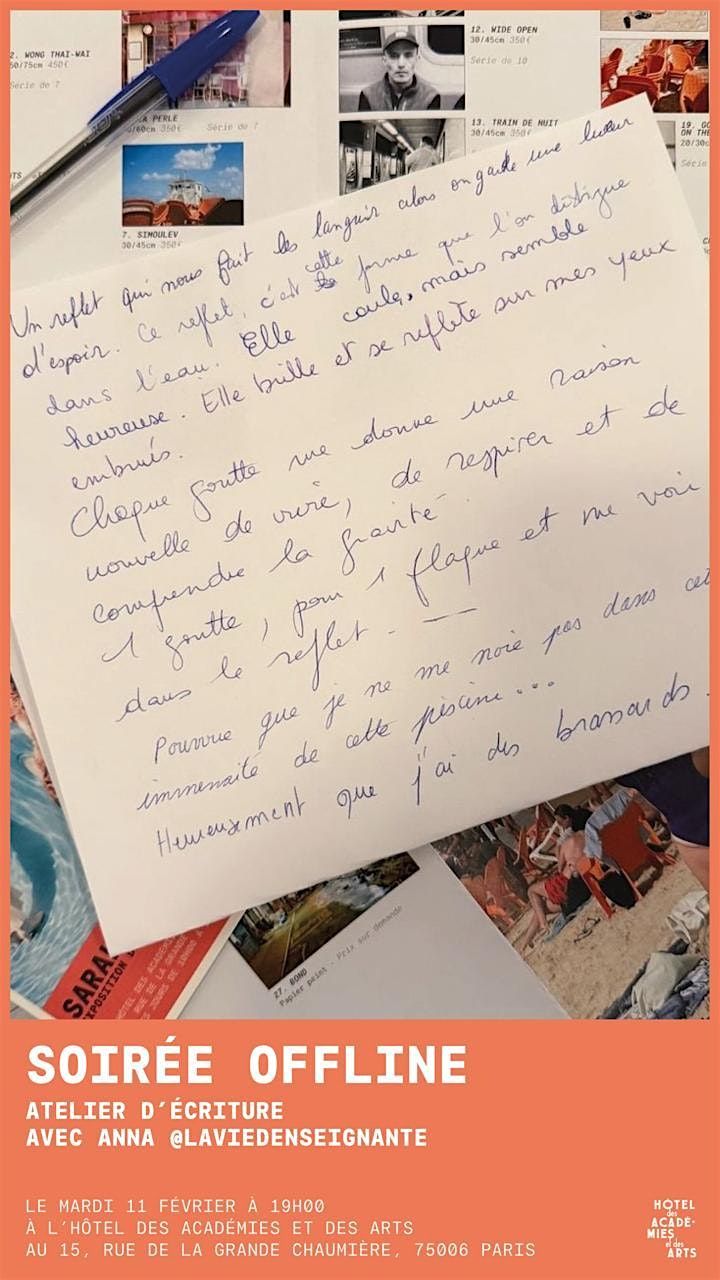 2. WONG THAI-WAI
50/75cm 450€
Série de 7
LA PERLE
40/60cm 350€ Série de 7
7. SIMOULEV
30/45cm 350€
12. WIDE OPEN
30/45cm 350€
Série de 10
13. TRAIN DE NUIT
30/45cm 350€
19. GO
ON THE
20/30c
Série
Un reflet qui nous fait les languir alors on garde une lueur
d'espoir. Ce reflet, c'est cette forme que l'on distigue
dans l'eau. Elle coule, mais semble
heureuse. Elle brille et se reflète sur mes yeux
embruis.
Chaque goutte me donne une raison
nouvelle de vivre, de respirer et de
comprendre la gravité.
1 goutte, pour 1 flaque et me voir
dans le reflet. —
Pourvue que je ne me noie pas dans cet
immensité de cette piscine...
Heureusement que j'ai des brassards.
SARA
EXPOSITION D
HÔTEL DES ACADÉMI
RUE DE LA GRANDE
27. BOND
Papier peint - Prix sur demande
SOIRÉE OFFLINE
ATELIER D'ÉCRITURE
AVEC ANNA @LAVIEDENSEIGNANTE
LE MARDI 11 FÉVRIER À 19H00
À L'HÔTEL DES ACADÉMIES ET DES ARTS
AU 15, RUE DE LA GRANDE CHAUMIÈRE, 75006 PARIS
HÔTEL
des
ACADÉ-
MIES
et des
ARTS